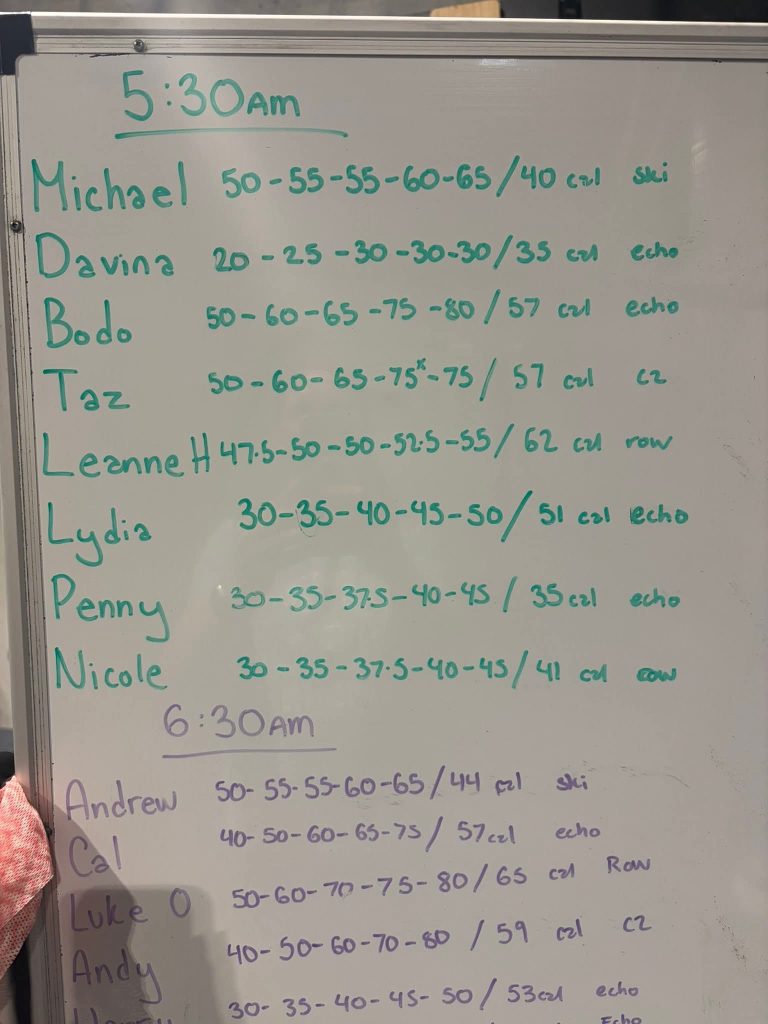 5:30AM
Michael 50-55-55-60-65/40 cal ski
Davina 20-25-30-30-30/35 cal echo
Bodo 50-60-65-75-80/57 cal echo
Taz 50-60-65-75x-75/57 cal C2
Leanne H 47.5-50-50-52.5-55/62 cal row
Lydia 30-35-40-45-50/51 cal echo
Penny 30-35-37.5-40-45/35 cal echo
Nicole 30-35-37.5-40-45/41 cal row
6:30AM
Andrew 50-55-55-60-65/44 cal ski
Cal 40-50-60-65-75/57 cal echo
Luke O 50-60-70-75-80/65 cal Row
Andy 40-50-60-70-80/59 cal C2
30-35-40-45-50/53 cal echo
Echo